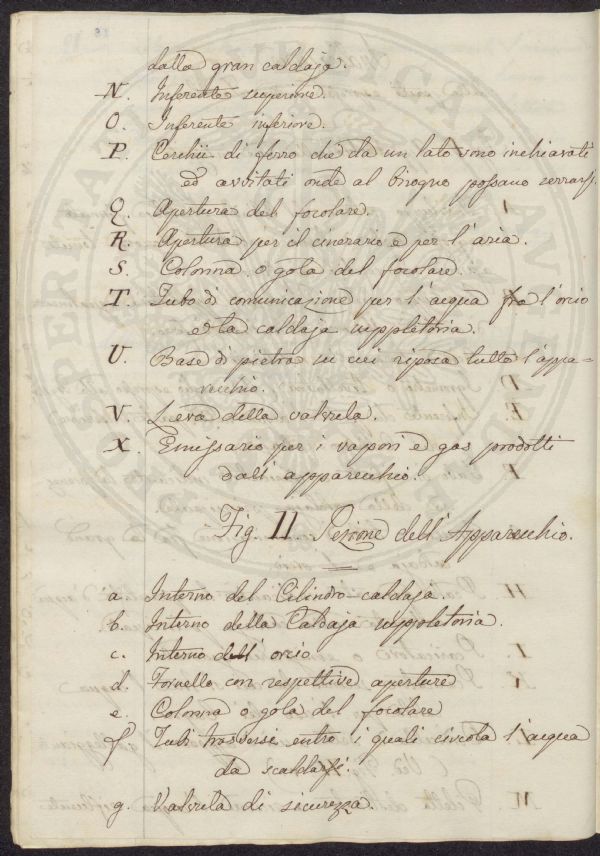 dalla gran caldaja.
N. Inferente superiore.
O. Inferente inferiore.
P. Cerchii di ferro che da un lato sono inchiavati
ed avvitati onde al bisogno possano serrarsi.
Q. Apertura del focolare.
R. Apertura per il cinerario e per l'aria.
S. Colonna o gola del focolare.
T. Tubo di comunicazione per l'acqua fra l'orcio
ed la caldaja suppletoria.
U. Base di pietra su cui riposa tutto l'appa-
recchio.
V. Leva della valvula.
X. Emissario per i vapori e gas prodotti
dall'apparecchio.
Fig. II Sezione dell'Apparecchio.
a. Interno del Cilindro caldaja.
b. Interno della Caldaja suppletoria.
c. Interno dell'orcio
d. Fornello con respettive aperture
e. Colonna o gola del focolare
f Tubi trasversi entro i quali circola l'acqua
da scaldarsi.
g. Valvula di sicurezza.